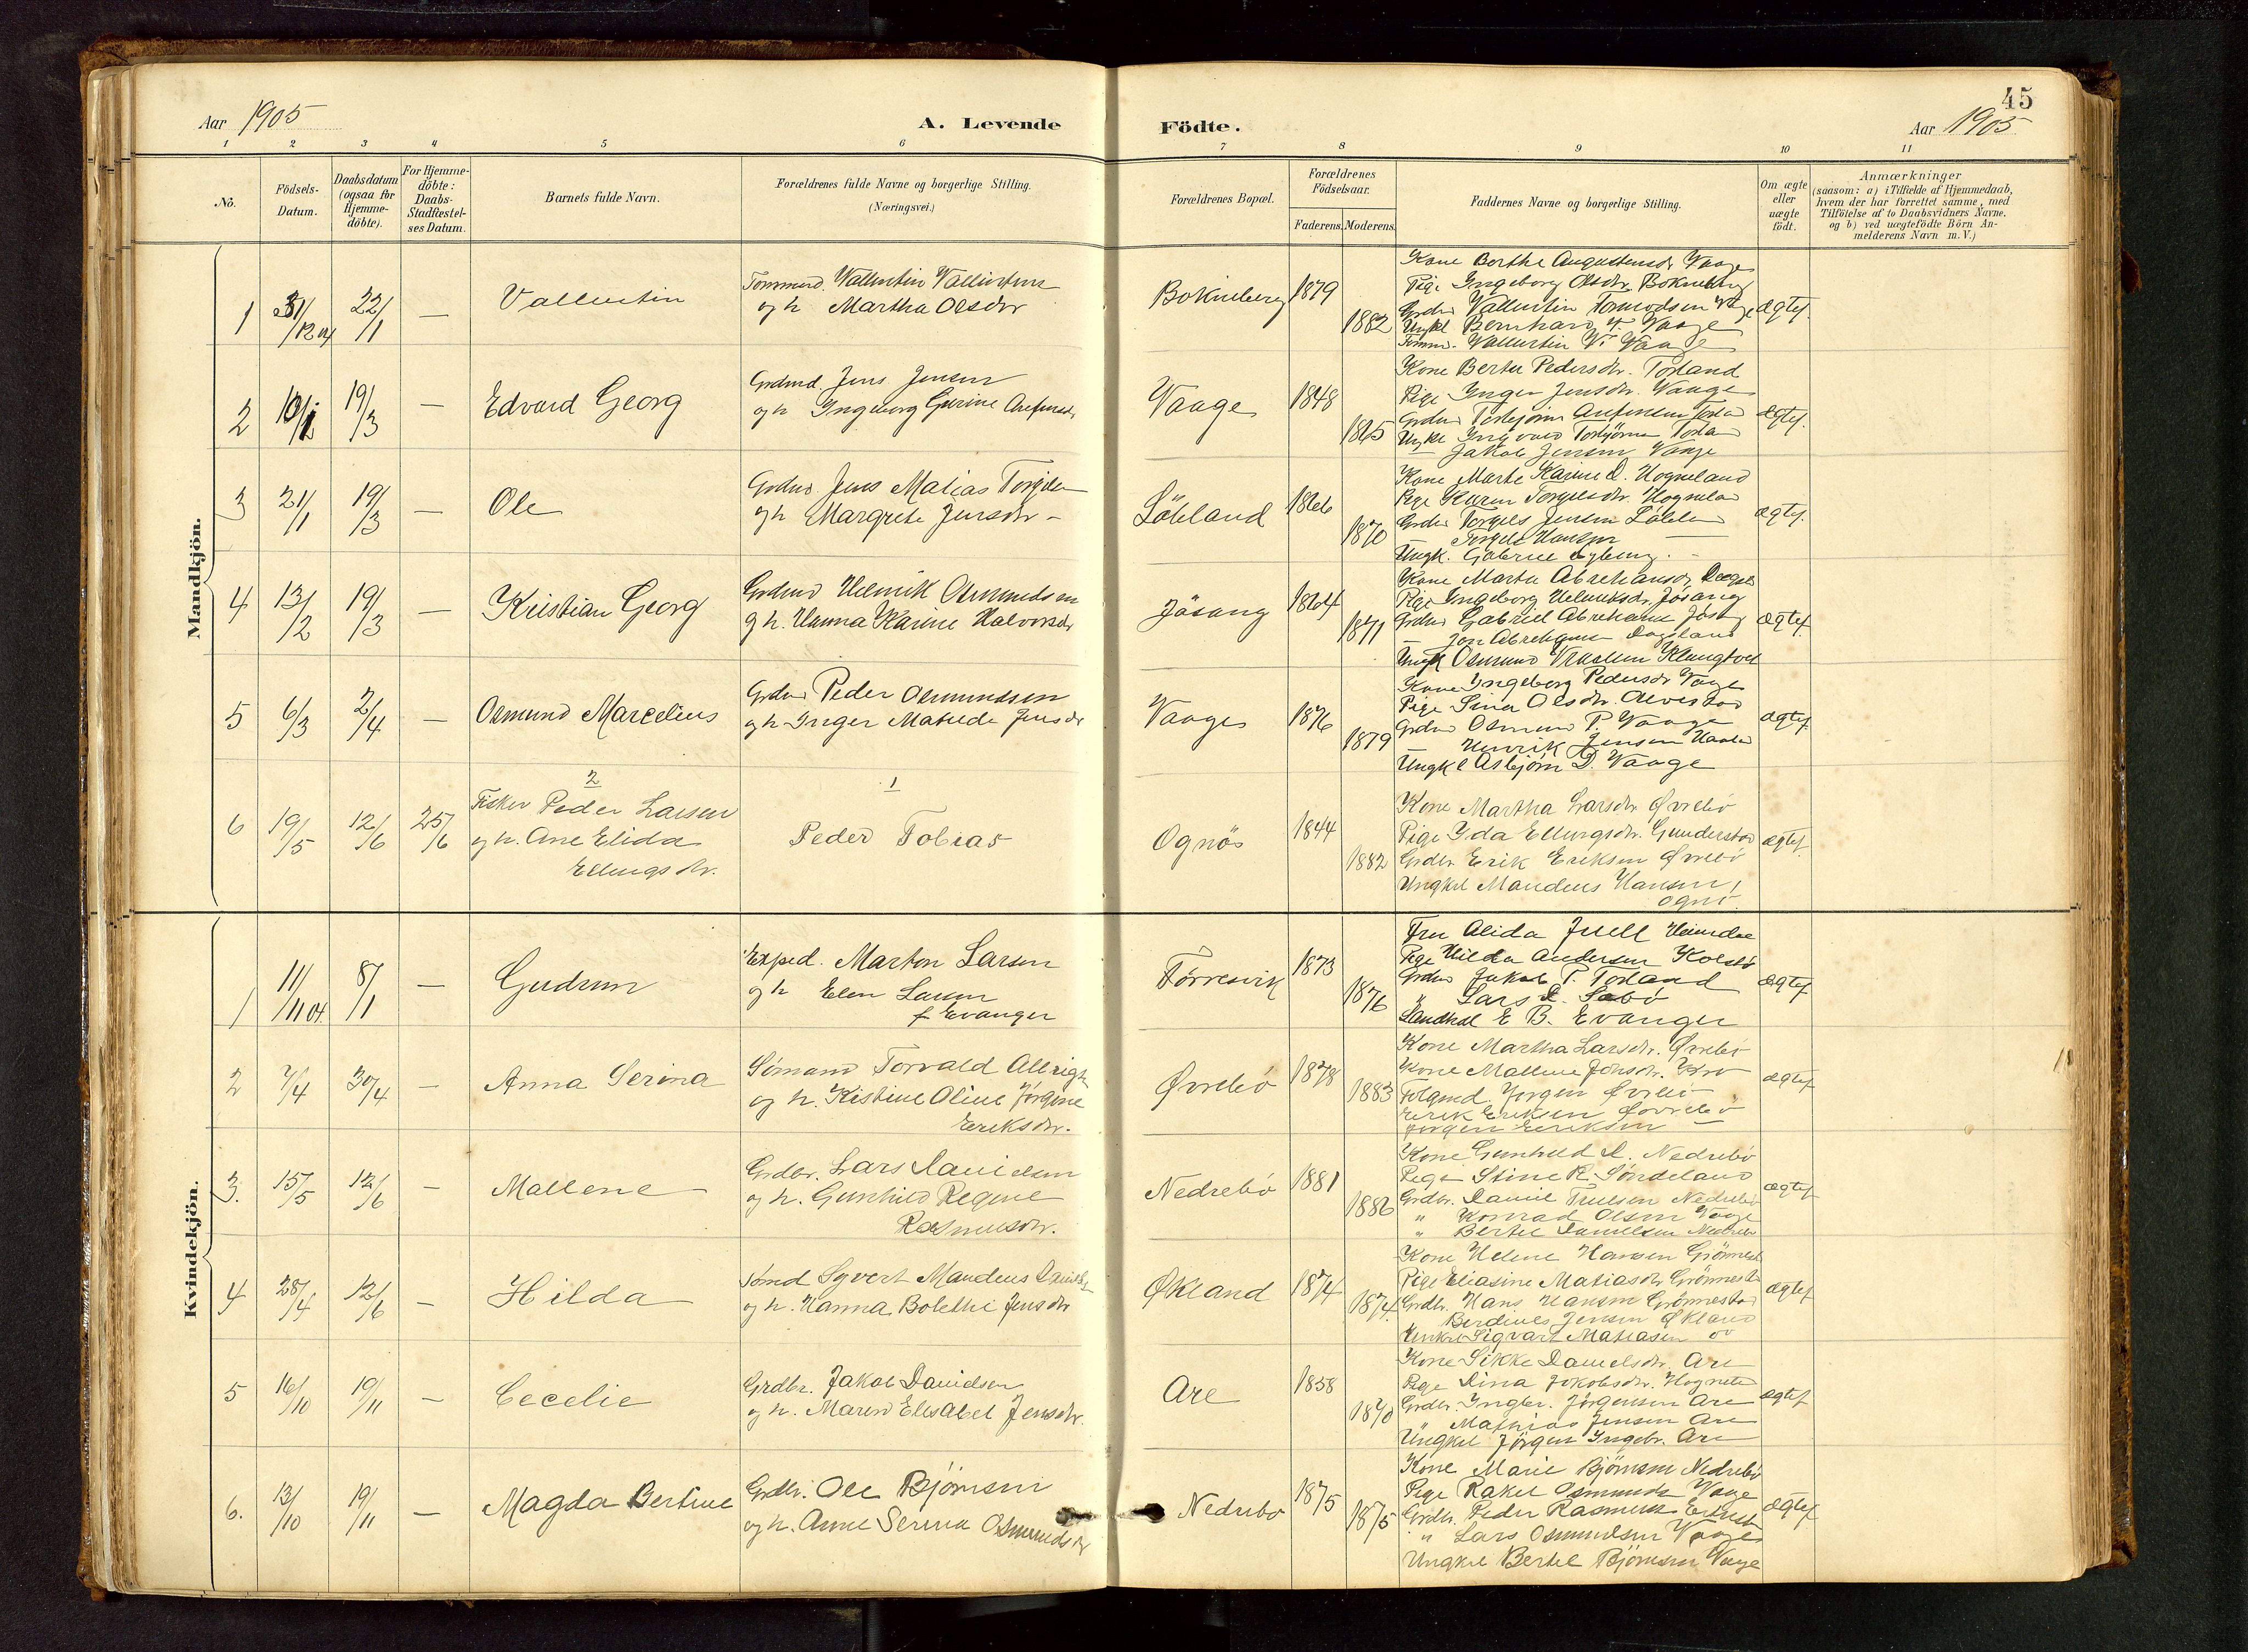 45
Aar 1905
A. Levende Födte.
Aar 1905
1 2 3 4 5 6 7 8 9 10 11
No.
Födsels-Datum.
Daabsdatum (ogsaa for Hjemme-döbte).
For Hjemme-döbte: Daabs-Stadfæstel-ses Datum.
Barnets fulde Navn.
Forældrenes fulde Navne og borgerlige Stilling.
(Næringsvei.)
Forældrenes Bopæl.
Forældrenes Födselsaar.
Faderens. Moderens.
Faddernes Navne og borgerlige Stilling.
Om ægte eller uægte födt.
Anmærkninger
(saasom: a) i Tilfælde af Hjemmedaab,
hvem der har forrettet samme, med
Tilföielse af to Daabsvidners Navne,
og b) ved uægtefödte Börn An-
melderens Navn m.V.)
Mandkjön.
1 31/12 04 22/1 — Vallentin
Tømmermd. Vallentin Vallentins
og h Martha Olsdtr
Bokneberg 1879 1882
Kone Berthe Augustinusd. Vaage
Pige Ingeborg Olsdtr. Bokneberg
Grdm Vallentin Tormodsen Vaage
Ungkl Bernhard V. Vaage
Tømm. Vallentin V. Vaage
ægtef.
2 19/3 — Edvard Georg
Grdmd. Jens Jensen
og h Ingeborg Gurine
Vaage 1848 1865
Kone Berte Pedersdtr. Torland
Pige Inger Jensdtr. Vaage
Grdm Torbjørn
Ungkl Ingvald Torbjørns
— Jakob Jensen Vaage
ægtef.
3 21/1 19/3 — Ole
Grdmd Jens Matias
og h Margrete Jensdtr —
Löbland 1866 1870
Kone Marte Karine D. Hogneland
Pige Karen Torgersdtr.
Grdm Jensen
— Hansen —
Ungk. Gabriel
ægtef.
4 13/2 19/3 — Kristian Georg
Grdmd Helmik Osmundsen
og h. Hanna Karine Halvorsdr
Jösang 1864 1871
Kone Marta Abrahamsdr.
Pige Ingeborg Helmiksdr. Jösang
Grdm Gabriel Abrahams Jösang
— Jon Abrahams
Ungk Osmund
ægtef.
5 6/3 2/4 — Osmund Marcelius
Grdm Peder Osmundsen
og h Inger Matilde Jensdr
Vaage 1876 1879
Kone Ingeborg Pedersdr Vaage
Pige Sina Olsdtr.
Grdm Osmund P. Vaage
Henrik Jensen
Ungkl Asbjørn D. Vaage
ægtef.
6 19/5 12/6 25/6
2
Fisker Peder Larsen
og h. Ane Elida
Ellingsdtr.
1
Peder Tobias
Ognös 1844 1882
Kone Martha Larsdtr Øvrebö
Pige Ida Ellingsdtr. Gunderstad
Grdbr. Erik Eriksen Øvrebö
Ungkl Mandius Hansen,
Ognö.
ægtef.
Kvindekjön.
1 11/11 04. 8/1 — Gudrun
Exped. Marton Larsen
og h Elen Larsen
f Evanger
Førresvik 1873 1876
Fru Alida Juell
Pige Hilda Andersen Kolstö
Grdm Jakob T. Torland
" Lars D. Sabö
Landhdl E B. Evanger
ægtef
2 7/4 30/4 — Anna Serina
Sømand Torvald
og h. Kistine Oline Jørgine
Eriksdtr.
Øvrebö 1878 1883
Kone Martha Larsdtr. Øvrebö
Kone Mallene Jonsdtr.
Folgmd. Jörgen Øvrebö
Erik Eriksen Øvrebö
Jörgen Eriksen —
ægtef
3. 15/5 12/6 — Mallene
Grdbr. Lars Danielsen
og h. Gunhild Regine
Rasmusdtr.
Nedrebö 1881 1886
Kone Gunhild D. Nedrebö
Pige Stine R. Søndeland
Grdbr. Daniel Nedrebö
" Konrad Olsen Vaage
" Bertel Danielsen Nedrebö
ægtef
4 28/4 12/6 — Hilda
Sømd Syvert Mandeus
og h. Hanna Bolethe Jensdtr
Økland 1874 1874
Kone Helene Hansen Grönnestad
Pige Eliasine Matiasdtr Grönnestad
Grdbr. Hans Hansen Grönnestad
Berdines Jensen Økland
Ungkl Sigvart Matiasen
ægtef
5 16/10 19/11 — Cecelie
Grdbr. Jakob Danielsen
og h. Maren Elisabet Jensdtr.
Are 1858 1870
Kone Sikke Danielsdtr. Are
Pige Dina Jakobsdtr.
Grdbr. Ingbr. Jörgensen Are
" Mathias Jensen Are
Ungkl Jörgen Ingebr. Are
ægtef
6. 13/10 19/11 — Magda Bertine
Grdbr. Ole Björnsen
og h. Anne Serina Osmundsdtr
Nedrebö 1875 1875
Kone Marie Björnsen Nedrebö
Pige Rakel Osmunds Vaage
Grdbr. Peder Rasmussen
" Lars Osmundsen Vaage
Ungkl Bertel Björnsen Vaage
ægtef